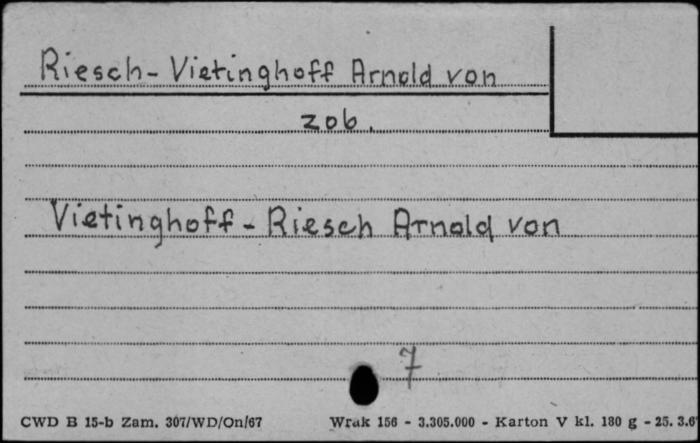 Riesch-Vietinghoff Arnold von
zob.
Vietinghoff-Riesch Arnold von
7
CWD B 15-b Zam. 307/WD/On/67 Wrak 156 - 3.305.000 - Karton V kl. 180 g - 25. 3.6